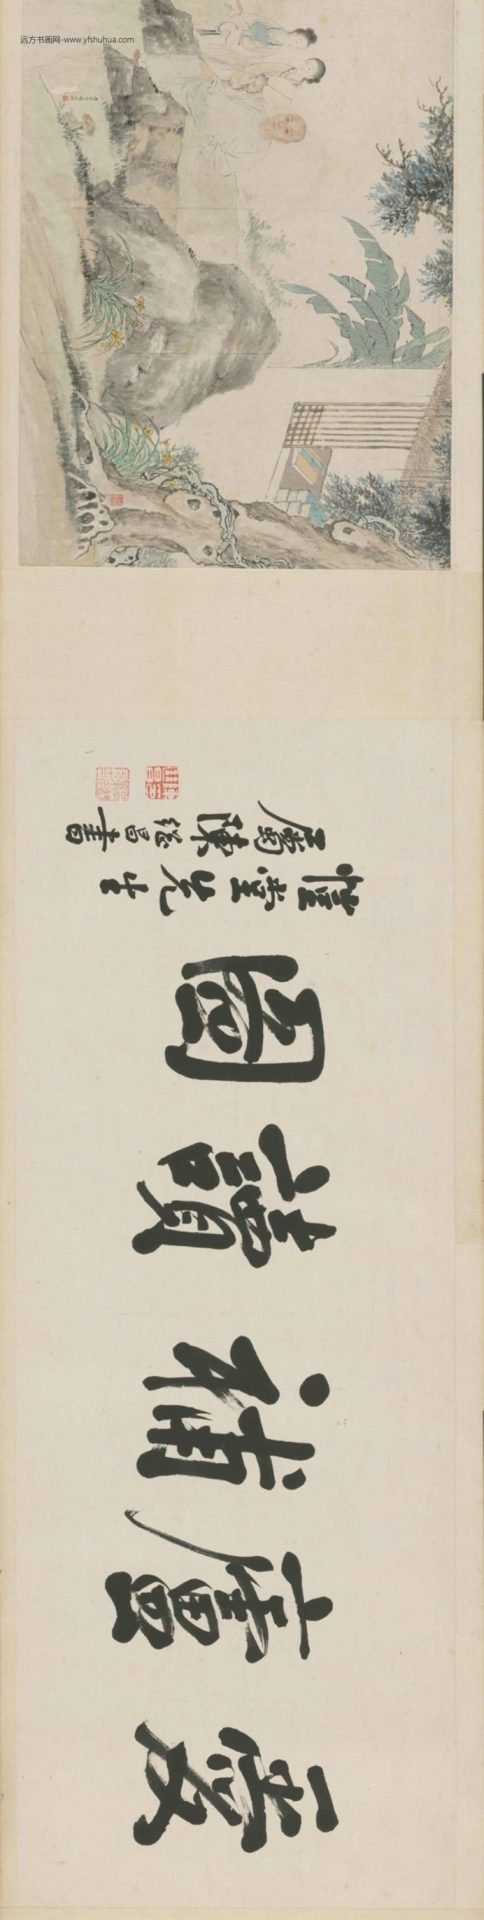 远方书画网-www.yfshuhua.com
愛廬補讀圖
堂兄
屬陳繼昌書